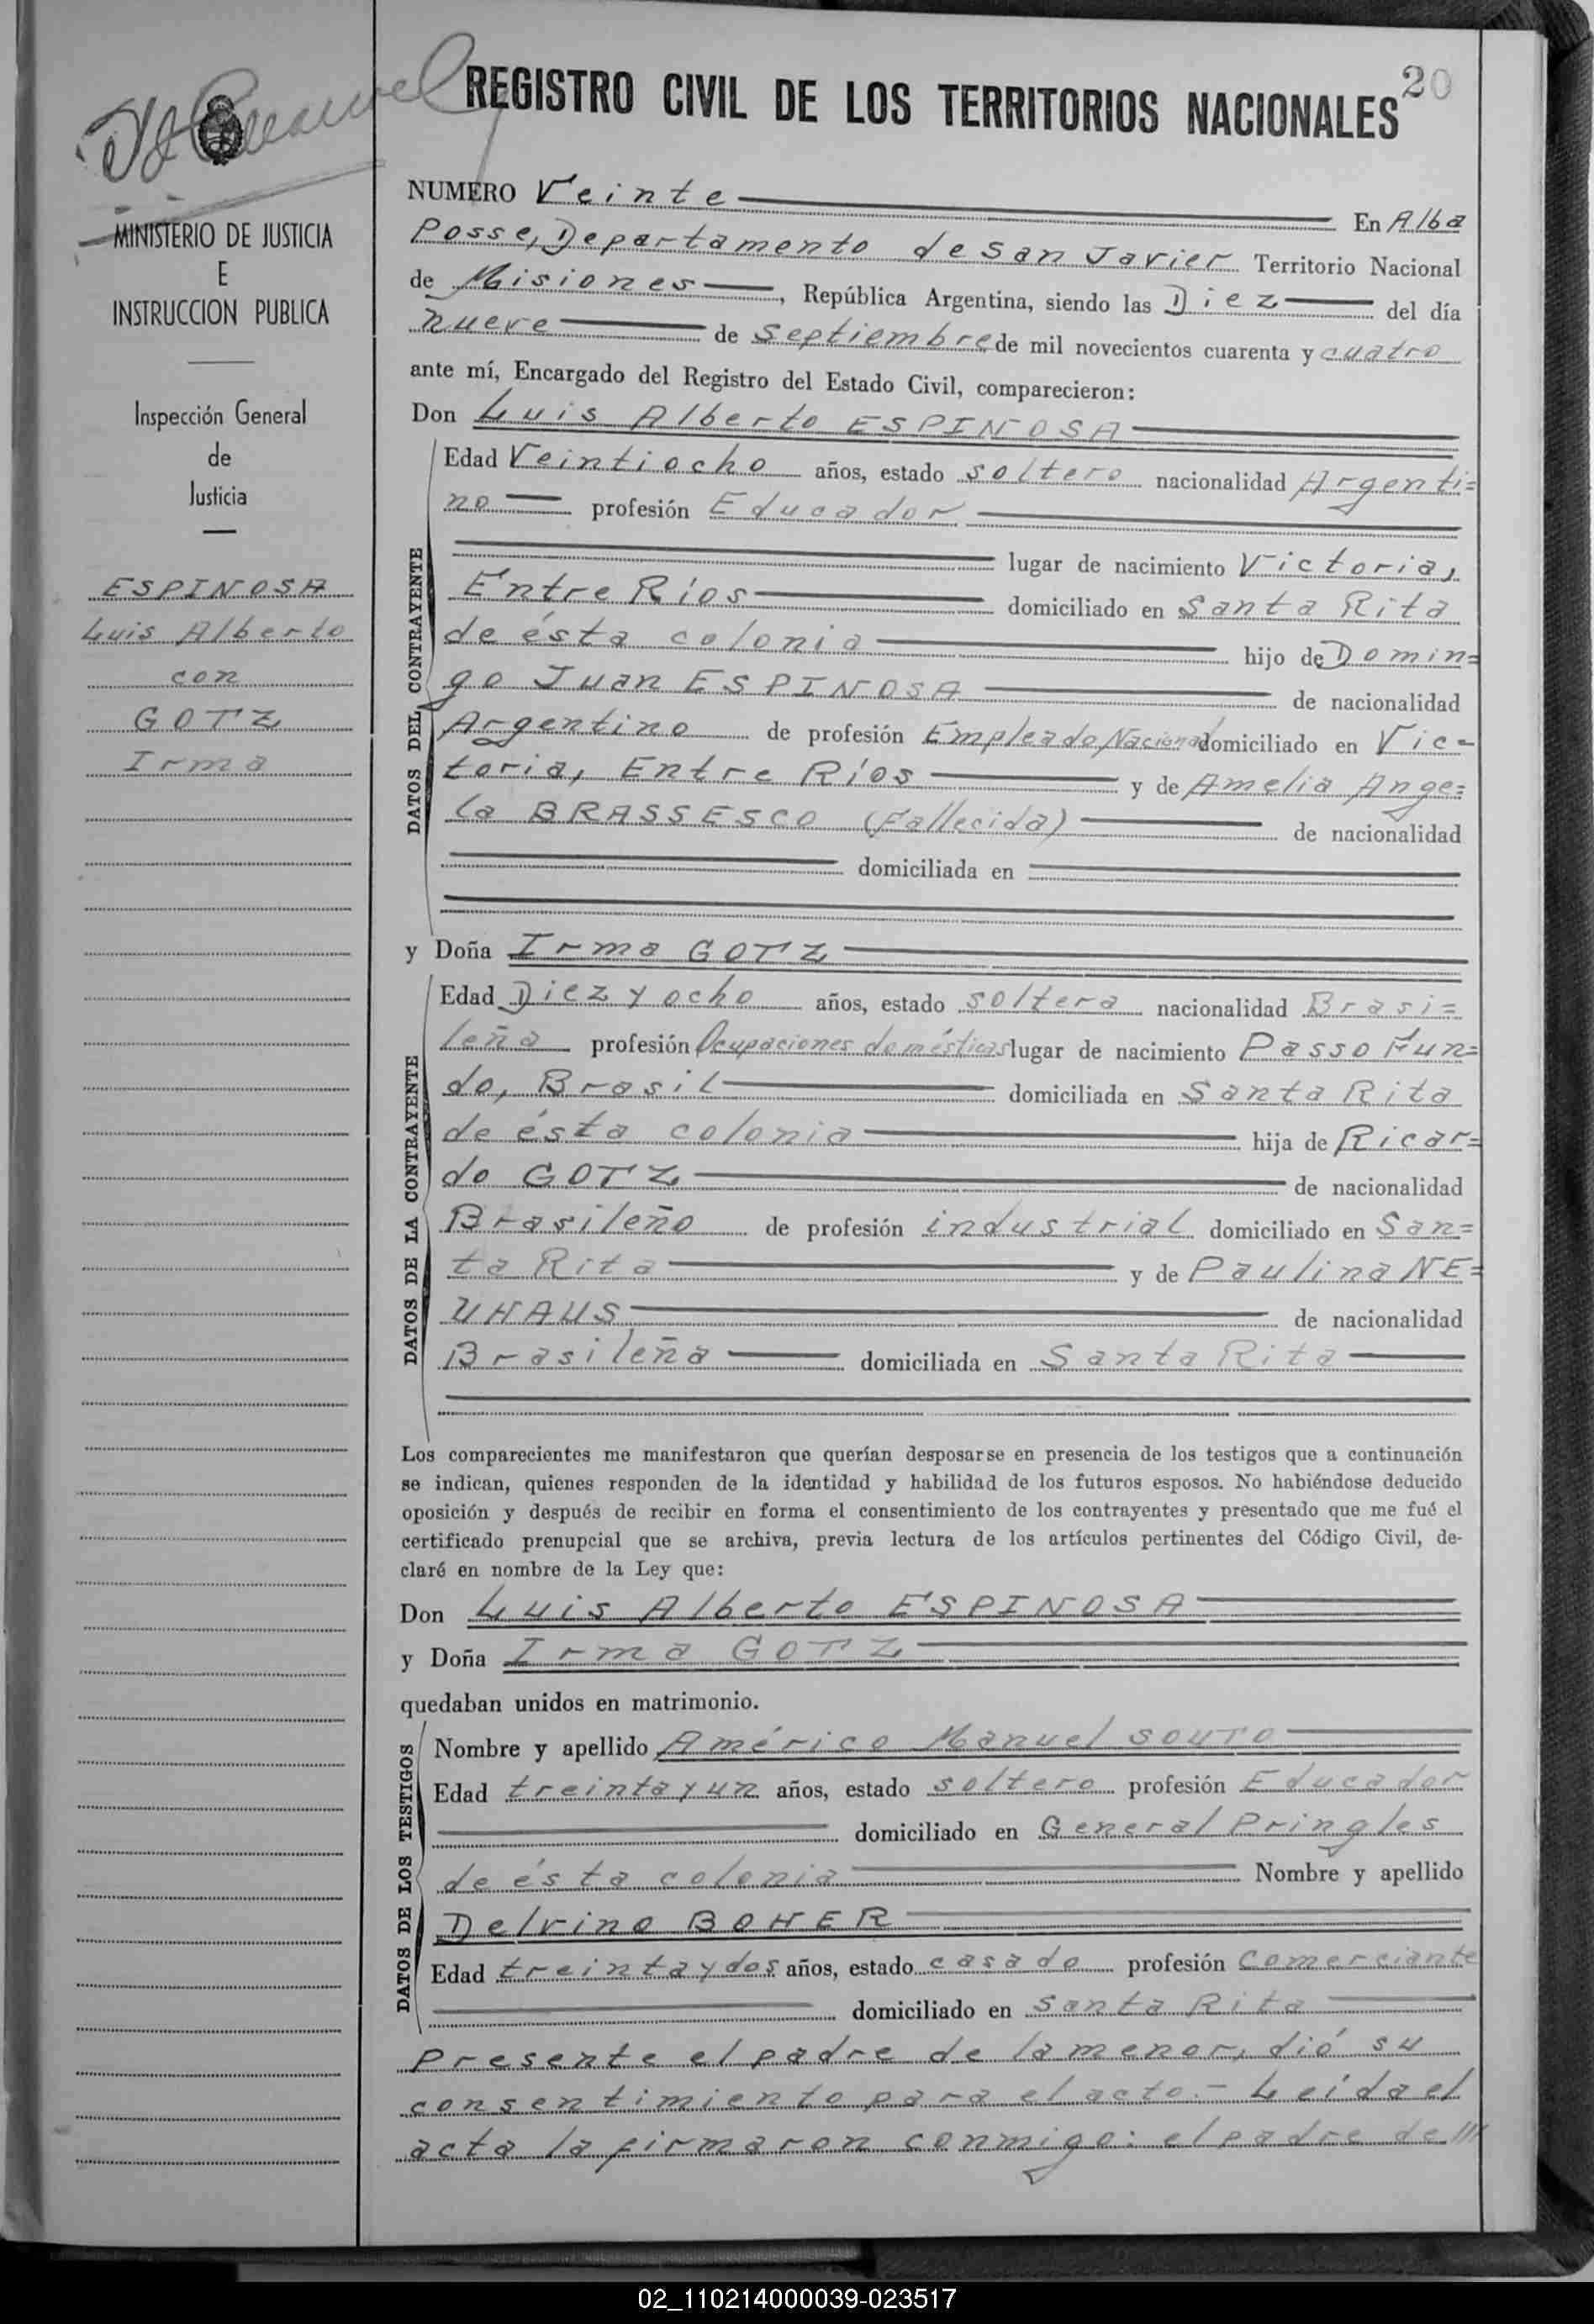 20
REGISTRO CIVIL DE LOS TERRITORIOS NACIONALES
MINISTERIO DE JUSTICIA
E
INSTRUCCION PUBLICA
Inspección General
de
Justicia
ESPINOSA
Luis Alberto
con
GOTZ
Irma
NUMERO Veinte En Alba
Posse, Departamento de San Javier Territorio Nacional
de Misiones, República Argentina, siendo las Diez del día
nueve de septiembre de mil novecientos cuarenta y cuatro
ante mí, Encargado del Registro del Estado Civil, comparecieron:
Don Luis Alberto ESPINOSA
DATOS DEL CONTRAYENTE
Edad Veintiocho años, estado soltero nacionalidad Argenti=
no profesión Educador
lugar de nacimiento Victoria,
Entre Ríos domiciliado en Santa Rita
de ésta colonia hijo de Domin=
go Juan ESPINOSA de nacionalidad
Argentino de profesión Empleado Nacional domiciliado en Vic-
toria, Entre Ríos y de Amelia Ange=
la BRASSESCO (Fallecida) de nacionalidad
domiciliada en
y Doña Irma GOTZ
DATOS DE LA CONTRAYENTE
Edad Diez y ocho años, estado soltera nacionalidad Brasi=
leña profesión Ocupaciones domésticas lugar de nacimiento Passo Fun=
do, Brasil domiciliada en Santa Rita
de ésta colonia hija de Ricar=
do GOTZ de nacionalidad
Brasileño de profesión industrial domiciliado en San=
ta Rita y de Paulina NE=
UHAUS de nacionalidad
Brasileña domiciliada en Santa Rita
Los comparecientes me manifestaron que querían desposarse en presencia de los testigos que a continuación
se indican, quienes responden de la identidad y habilidad de los futuros esposos. No habiéndose deducido
oposición y después de recibir en forma el consentimiento de los contrayentes y presentado que me fué el
certificado prenupcial que se archiva, previa lectura de los artículos pertinentes del Código Civil, de-
claré en nombre de la Ley que:
Don Luis Alberto ESPINOSA
y Doña Irma GOTZ
quedaban unidos en matrimonio.
DATOS DE LOS TESTIGOS
Nombre y apellido Américo Manuel SOUTO
Edad treinta y un años, estado soltero profesión Educador
domiciliado en General Pringles
de ésta colonia Nombre y apellido
Delvino BOHER
Edad treinta y dos años, estado casado profesión comerciante
domiciliado en Santa Rita
Presente el padre de la menor, dió su
consentimiento para el acto.- Leída el
acta la firmaron conmigo: el padre de ///
02_110214000039-023517